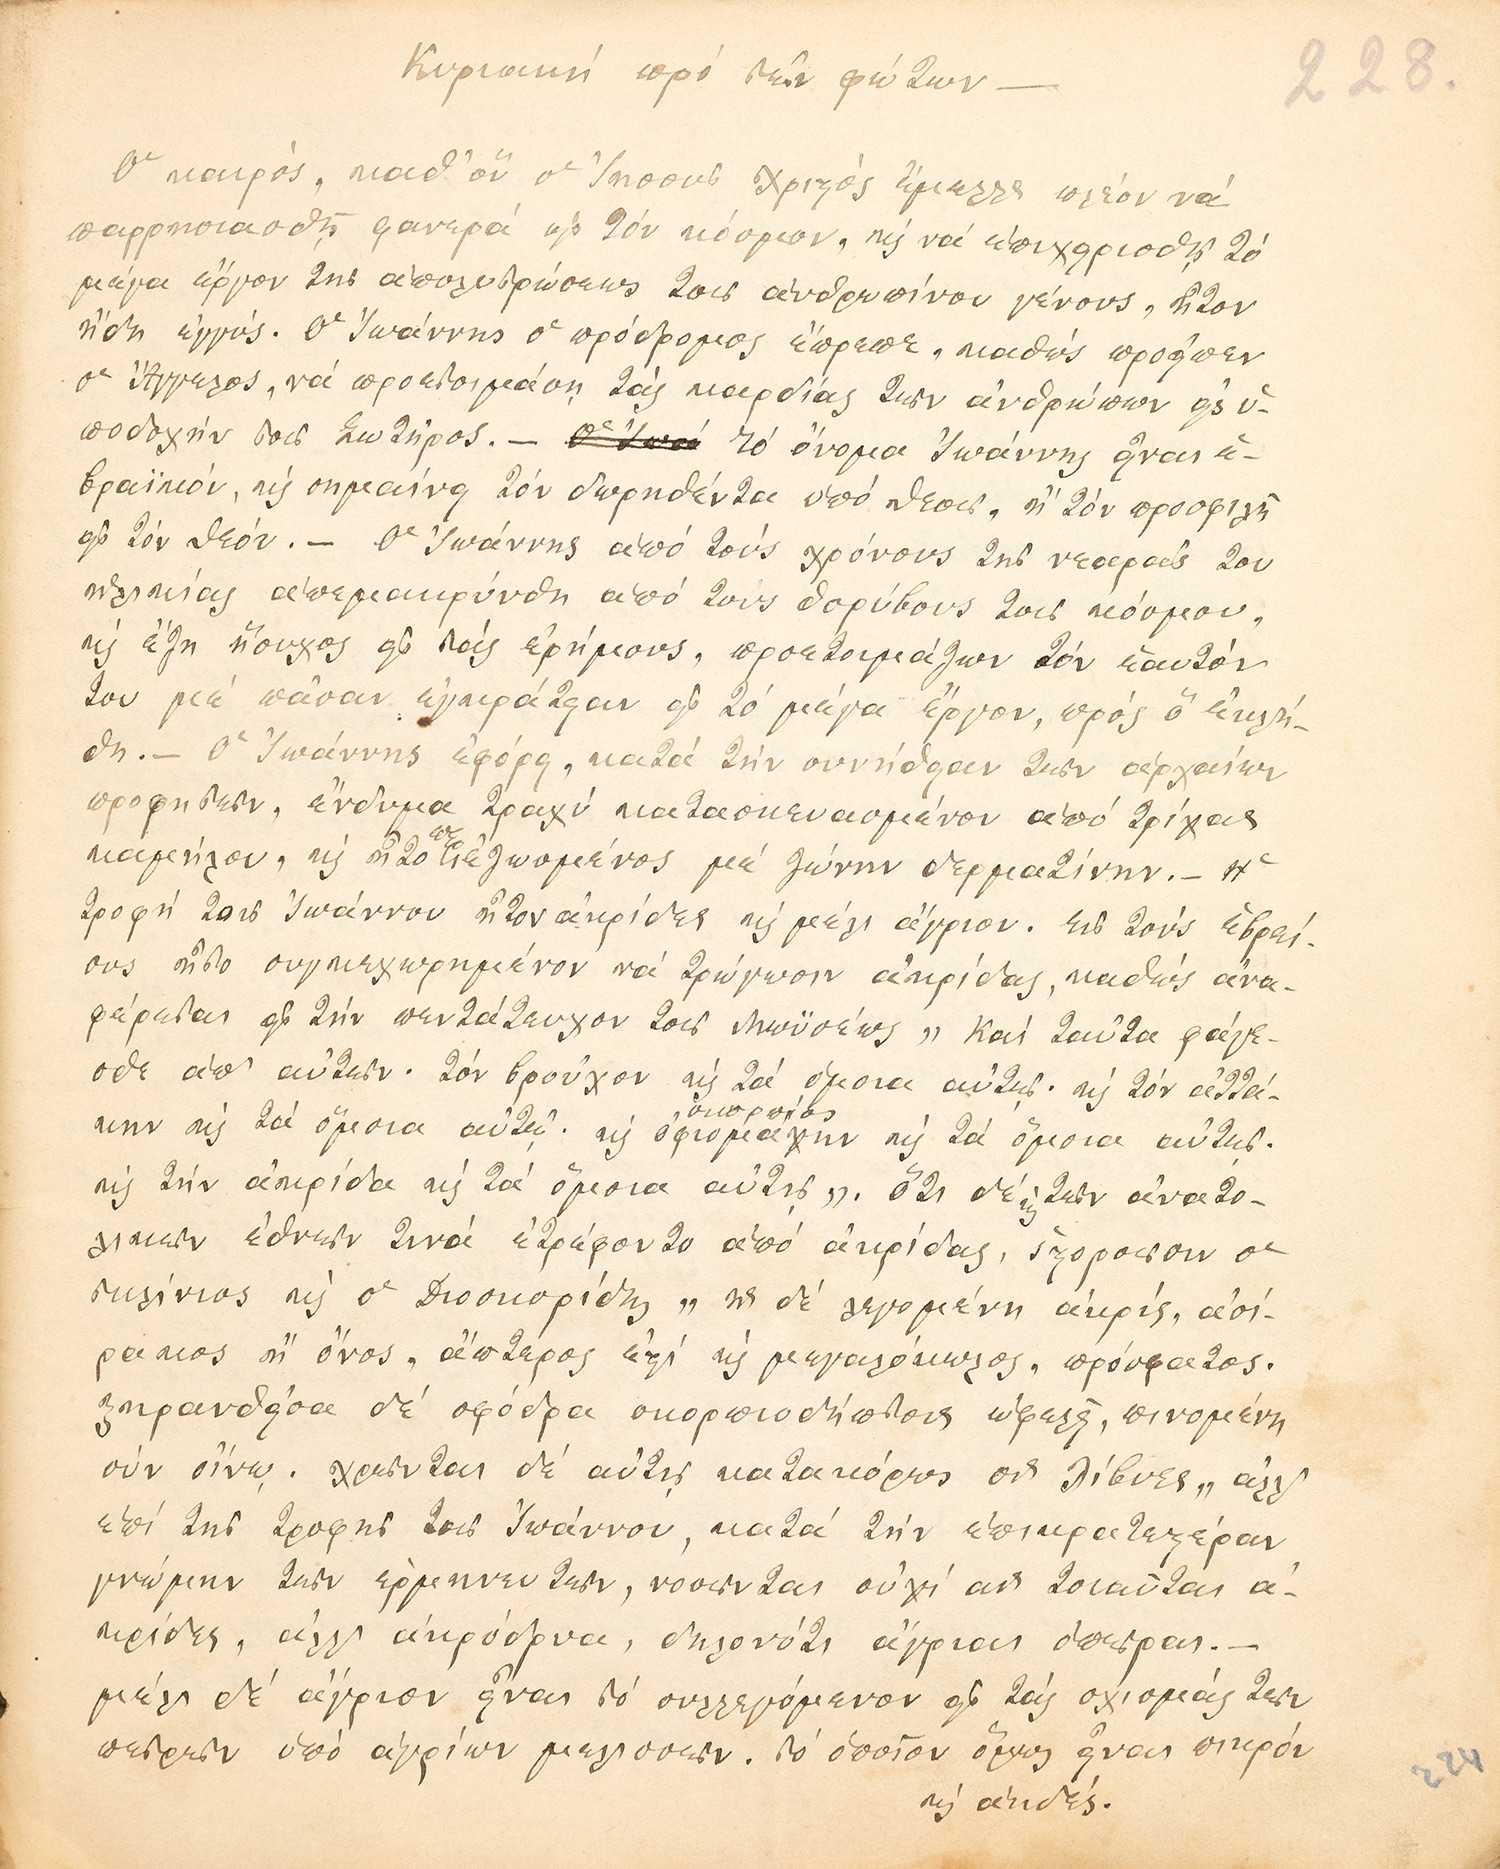 Κυριακή πρό τῶν φώτων —
228.
Ὁ καιρός, καθ' ὅν ὁ Ἰησοῦς Χριστός ἔμελλε πλέον νά
παρρησιασθῇ φανερά εἰς τόν κόσμον, καί νά ἐπιχειρισθῇ τό
μέγα ἔργον τῆς ἀπολυτρώσεως τοῦ ἀνθρωπίνου γένους, ἦτον
ἤδη ἐγγύς. Ὁ Ἰωάννης ὁ πρόδρομος ἔπρεπε, καθώς προεῖπεν
ὁ Ἄγγελος, νά προετοιμάσῃ τάς καρδίας τῶν ἀνθρώπων εἰς ὑ-
ποδοχήν τοῦ Σωτῆρος. — Ὁ Ἰωά Τό ὄνομα Ἰωάννης εἶναι ἑ-
βραϊκόν, καί σημαίνει τόν δωρηθέντα ὑπό θεοῦ, ἤ τόν προσφιλῆ
εἰς τόν θεόν. — Ὁ Ἰωάννης ἀπό τούς χρόνους τῆς νεαρᾶς του
ἡλικίας ἀπεμακρύνθη ἀπό τούς θορύβους τοῦ κόσμου,
καί ἔζη ἥσυχος εἰς τάς ἐρήμους, προετοιμάζων τόν ἑαυτόν
του μέ πᾶσαν ἐγκράτειαν εἰς τό μέγα ἔργον, πρός ὅ ἐκλή-
θη. — Ὁ Ἰωάννης ἐφόρει, κατά τήν συνήθειαν τῶν ἀρχαίων
προφητῶν, ἔνδυμα τραχύ κατασκευασμένον ἀπό τρίχας
καμήλου, καί ἦτο περιεζωσμένος μέ ζώνην δερματίνην. — Ἡ
τροφή τοῦ Ἰωάννου ἦτον ἀκρίδες καί μέλι ἄγριον. Εἰς τούς ἑβραί-
ους ἦτο συγκεχωρημένον νά τρώγωσιν ἀκρίδας, καθώς ἀνα-
φέρεται εἰς τήν πεντάτευχον τοῦ Μωϋσέως „ Καί ταῦτα φάγε-
σθε ἀπ' αὐτῶν. τόν βροῦχον καί τά ὅμοια αὐτῷ. καί τόν ἀττά-
κην καί τά ὅμοια αὐτῷ. καί ὀφιομάχην σκορπίος καί τά ὅμοια αὐτῷ.
καί τήν ἀκρίδα καί τά ὅμοια αὐτῇ „. Ὅτι δέ καί τῶν ἀνατο-
λικῶν ἐθνῶν τινά ἐτρέφοντο ἀπό ἀκρίδας, ἱστοροῦσιν ὁ
Πλίνιος καί ὁ Διοσκορίδης „ ἡ δέ λεγομένη ἀκρίς, ἀσί-
ρακος ἤ ὄνος, ἄπτερος ἐστί καί μεγαλόκωλος, πρόσφατος.
ξηρανθεῖσα δέ σφόδρα σκορπιοδήπτους ὠφελεῖ, πινομένη
σύν οἴνῳ. χρῶνται δέ αὐτῇ κατακόρως οἱ Λίβυες „ ἀλλ'
ἐπί τῆς τροφῆς τοῦ Ἰωάννου, κατά τήν ἐπικρατεστέραν
γνώμην τῶν ἑρμηνευτῶν, νοοῦνται οὐχί αἱ τοιαῦται ἀ-
κρίδες, ἀλλ' ἀκρόδρυα, δηλονότι ἄγριαι ὀπῶραι. —
μέλι δέ ἄγριον εἶναι τό συλλεγόμενον εἰς τάς σχισμάς τῶν
πετρῶν ὑπό ἀγρίων μελισσῶν. τό ὁποῖον ὅμως εἶναι πικρόν
καί ἀηδές.
224